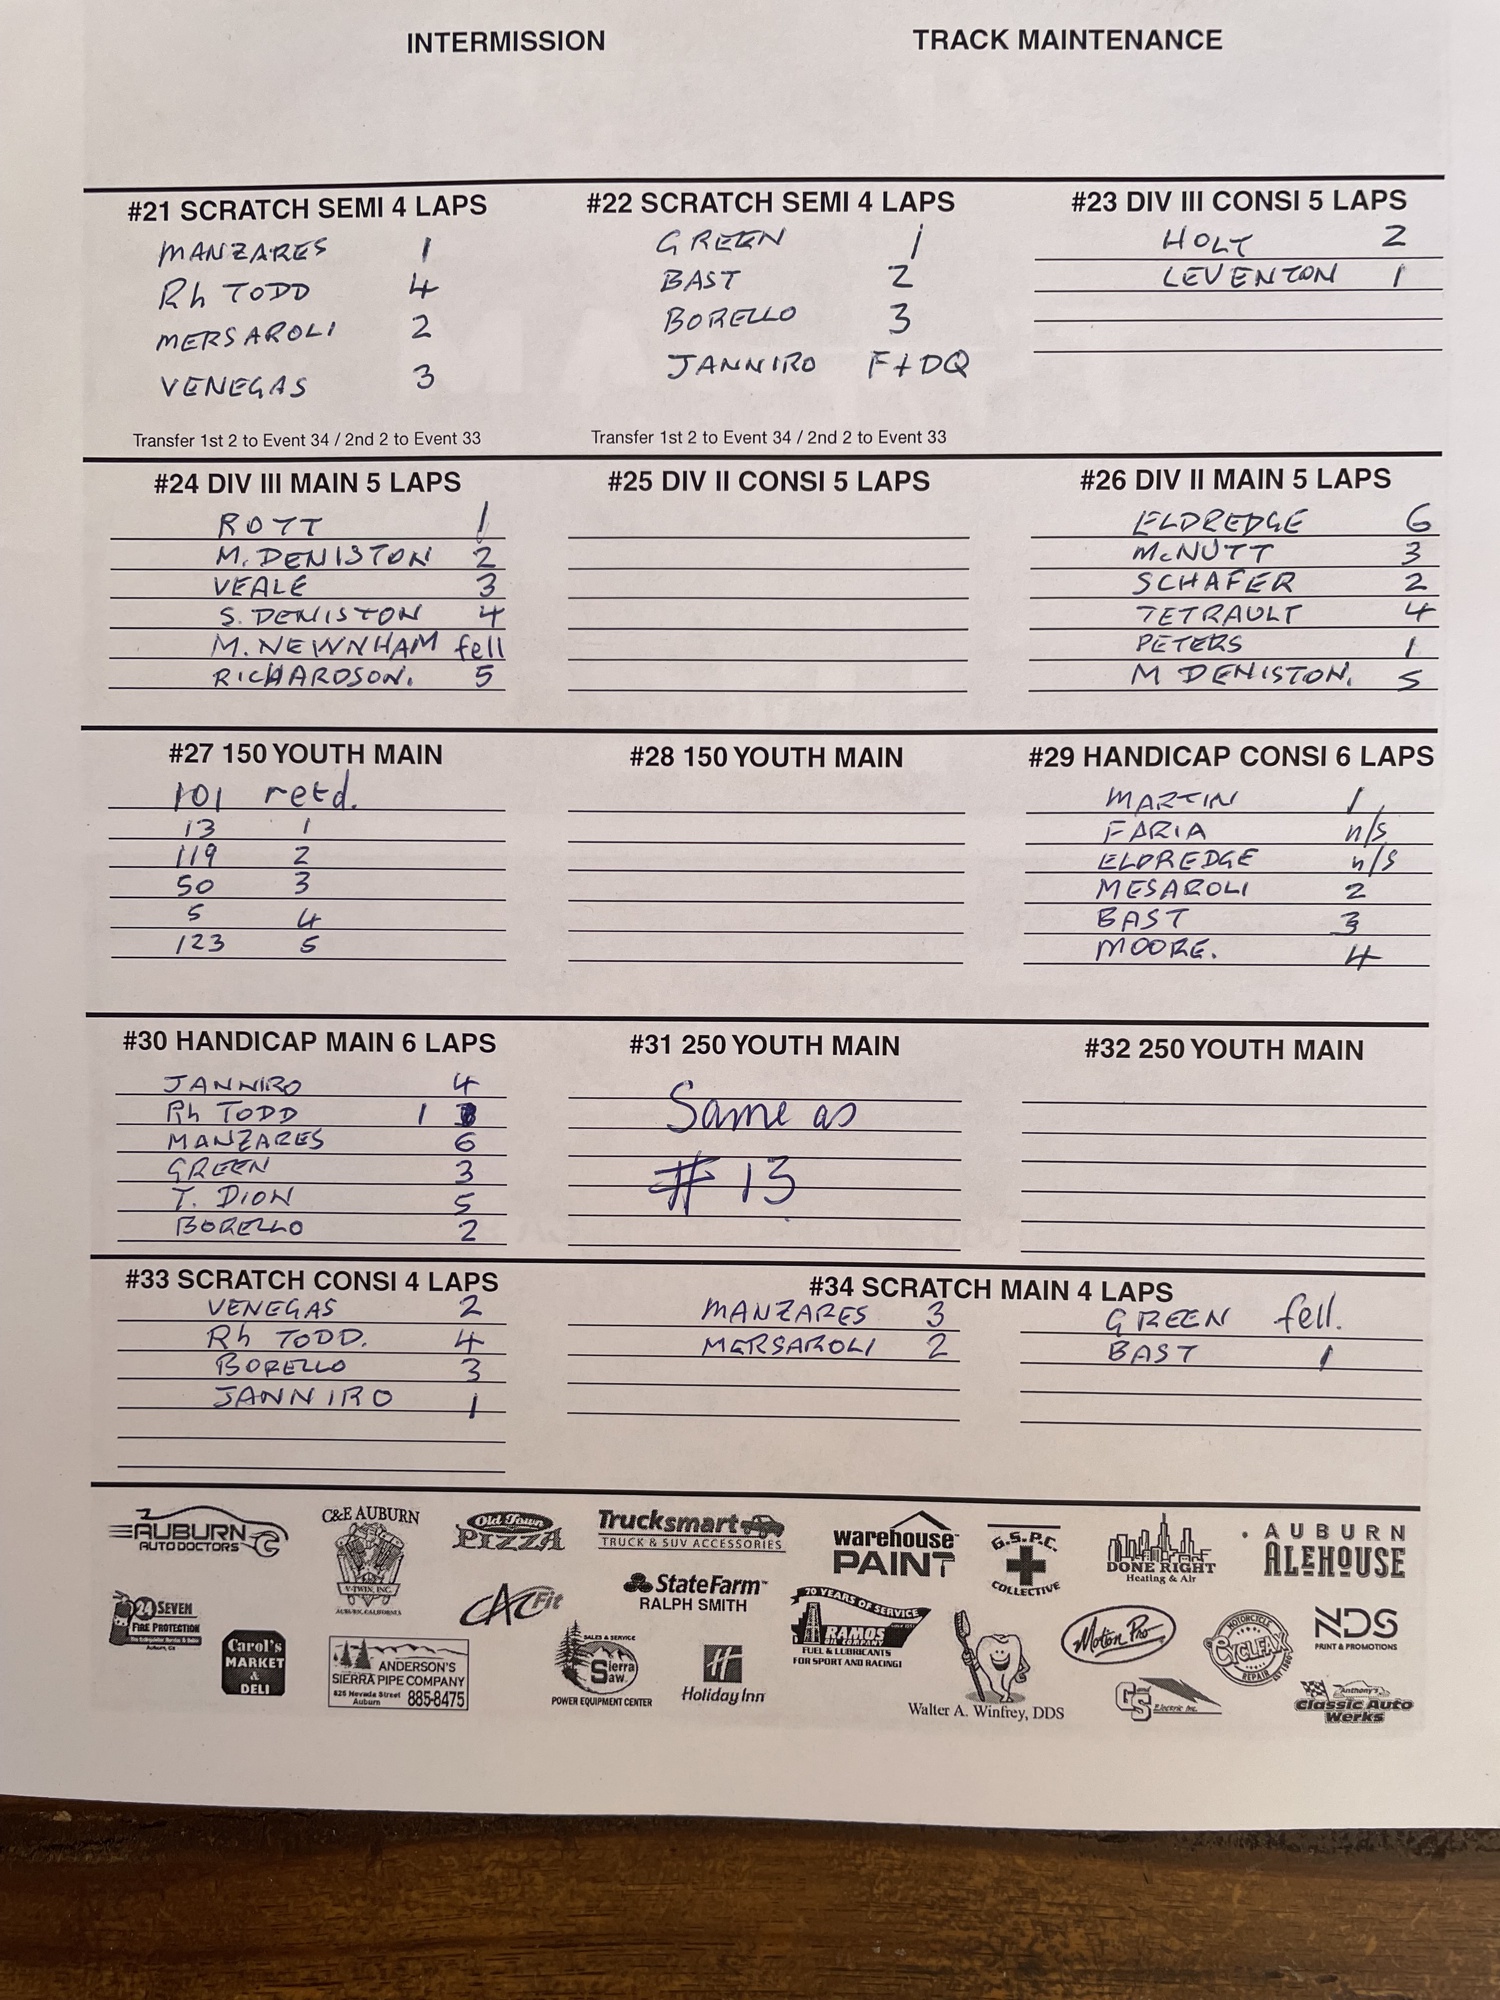 INTERMISSION TRACK MAINTENANCE
#21 SCRATCH SEMI 4 LAPS
MANZARES 1
Rh TODD 4
MERSAROLI 2
VENEGAS 3
Transfer 1st 2 to Event 34 / 2nd 2 to Event 33
#22 SCRATCH SEMI 4 LAPS
GREEN 1
BAST 2
BORELLO 3
JANNIRO F+DQ
Transfer 1st 2 to Event 34 / 2nd 2 to Event 33
#23 DIV III CONSI 5 LAPS
HOLT 2
LEVENTON 1
#24 DIV III MAIN 5 LAPS
ROTT 1
M. DENISTON 2
VEALE 3
S. DENISTON 4
M. NEWNHAM fell
RICHARDSON. 5
#25 DIV II CONSI 5 LAPS
#26 DIV II MAIN 5 LAPS
ELDREDGE 6
McNUTT 3
SCHAFER 2
TETRAULT 4
PETERS 1
M DENISTON. 5
#27 150 YOUTH MAIN
101 retd.
13 1
119 2
50 3
5 4
123 5
#28 150 YOUTH MAIN
#29 HANDICAP CONSI 6 LAPS
MARTIN 1
FARIA n/s
ELDREDGE n/s
MESAROLI 2
BAST 3
MOORE. 4
#30 HANDICAP MAIN 6 LAPS
JANNIRO 4
Rh TODD 1
MANZARES 6
GREEN 3
T. DION 5
BORELLO 2
#31 250 YOUTH MAIN
Same as
# 13
#32 250 YOUTH MAIN
#33 SCRATCH CONSI 4 LAPS
VENEGAS 2
Rh TODD. 4
BORELLO 3
JANNIRO 1
#34 SCRATCH MAIN 4 LAPS
MANZARES 3
MERSAROLI 2
GREEN fell.
BAST 1
AUBURN
AUTO DOCTORS
C&E AUBURN
V-TWIN, INC.
AUBURN, CALIFORNIA
Old Town
PIZZA
Trucksmart
TRUCK & SUV ACCESSORIES
warehouse
PAINT
G.S.P.C.
COLLECTIVE
DONE RIGHT
Heating & Air
AUBURN
ALEHOUSE
24 SEVEN
FIRE PROTECTION
CAC Fit
StateFarm™
RALPH SMITH
70 YEARS OF SERVICE
RAMOS
OIL COMPANY
FUEL & LUBRICANTS
FOR SPORT AND RACING!
Motion Pro
MOTORCYCLE
CYCLEFAX
REPAIR
NDS
PRINT & PROMOTIONS
Carol's
MARKET
&
DELI
ANDERSON'S
SIERRA PIPE COMPANY
625 Nevada Street
Auburn 885-8475
SALES & SERVICE
Sierra
Saw
POWER EQUIPMENT CENTER
H
Holiday Inn
Walter A. Winfrey, DDS
GS Electric Inc.
Anthony's
Classic Auto
Werks